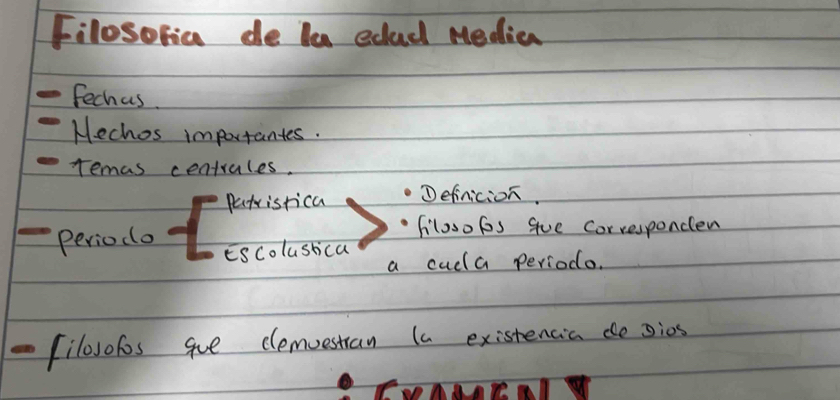 Filosofia de la edad Media
- fechas.
- Hechos importantes.
- temas centrales.
- periodo { Patristica > • Definición.
Escolastica • filosofos que corresponden
a cada periodo.
- filosofos que demuestran la existencia de Dios
¡ EXAMEN !